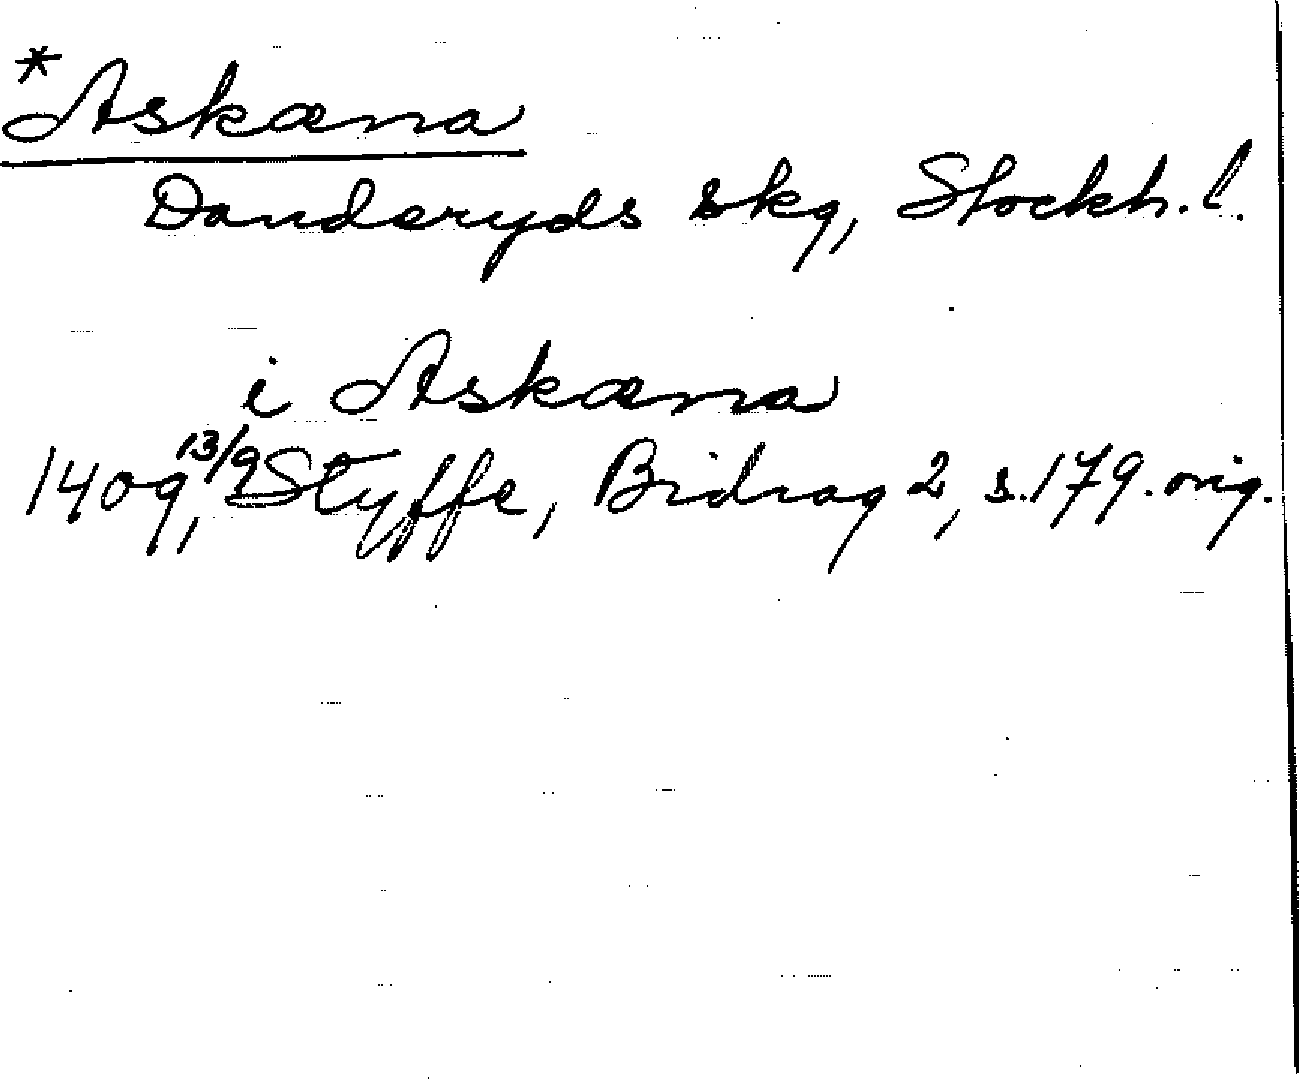 *Askæna
Danderyds skg, Stockh. l.
i Askæna
1409 13/9, Styffe, Bidrag 2, s. 179. orig.